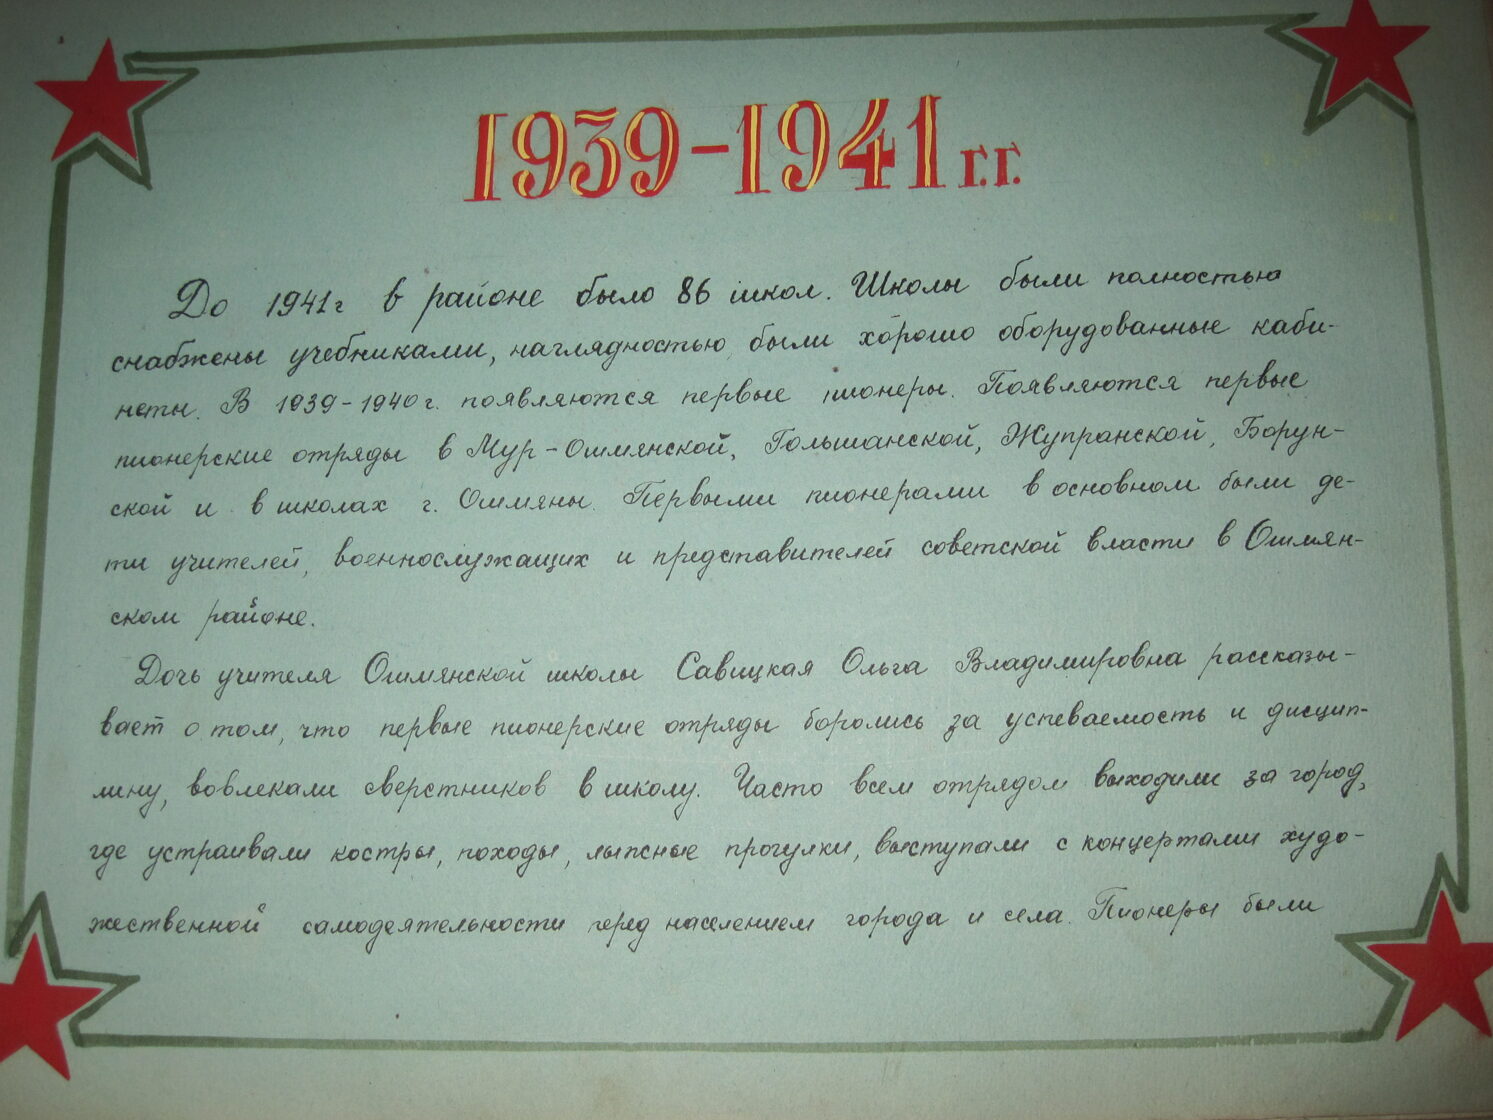 1939-1941 г.г.
До 1941г в районе было 86 школ. Школы были полностью
снабжены учебниками, наглядностью, были хорошо оборудованные каби-
неты. В 1939-1940г. появляются первые пионеры. Появляются первые
пионерские отряды в Мур-Ошмянской, Гольшанской, Жупранской, Борун-
ской и в школах г. Ошмяны. Первыми пионерами в основном были де-
ти учителей, военнослужащих и представителей советской власти в Ошмян-
ском районе.
Дочь учителя Ошмянской школы Савицкая Ольга Владимировна рассказы-
вает о том, что первые пионерские отряды боролись за успеваемость и дисцип-
лину, вовлекали сверстников в школу. Часто всем отрядом выходили за город,
где устраивали костры, походы, лыжные прогулки, выступали с концертами худо-
жественной самодеятельности перед населением города и села. Пионеры были